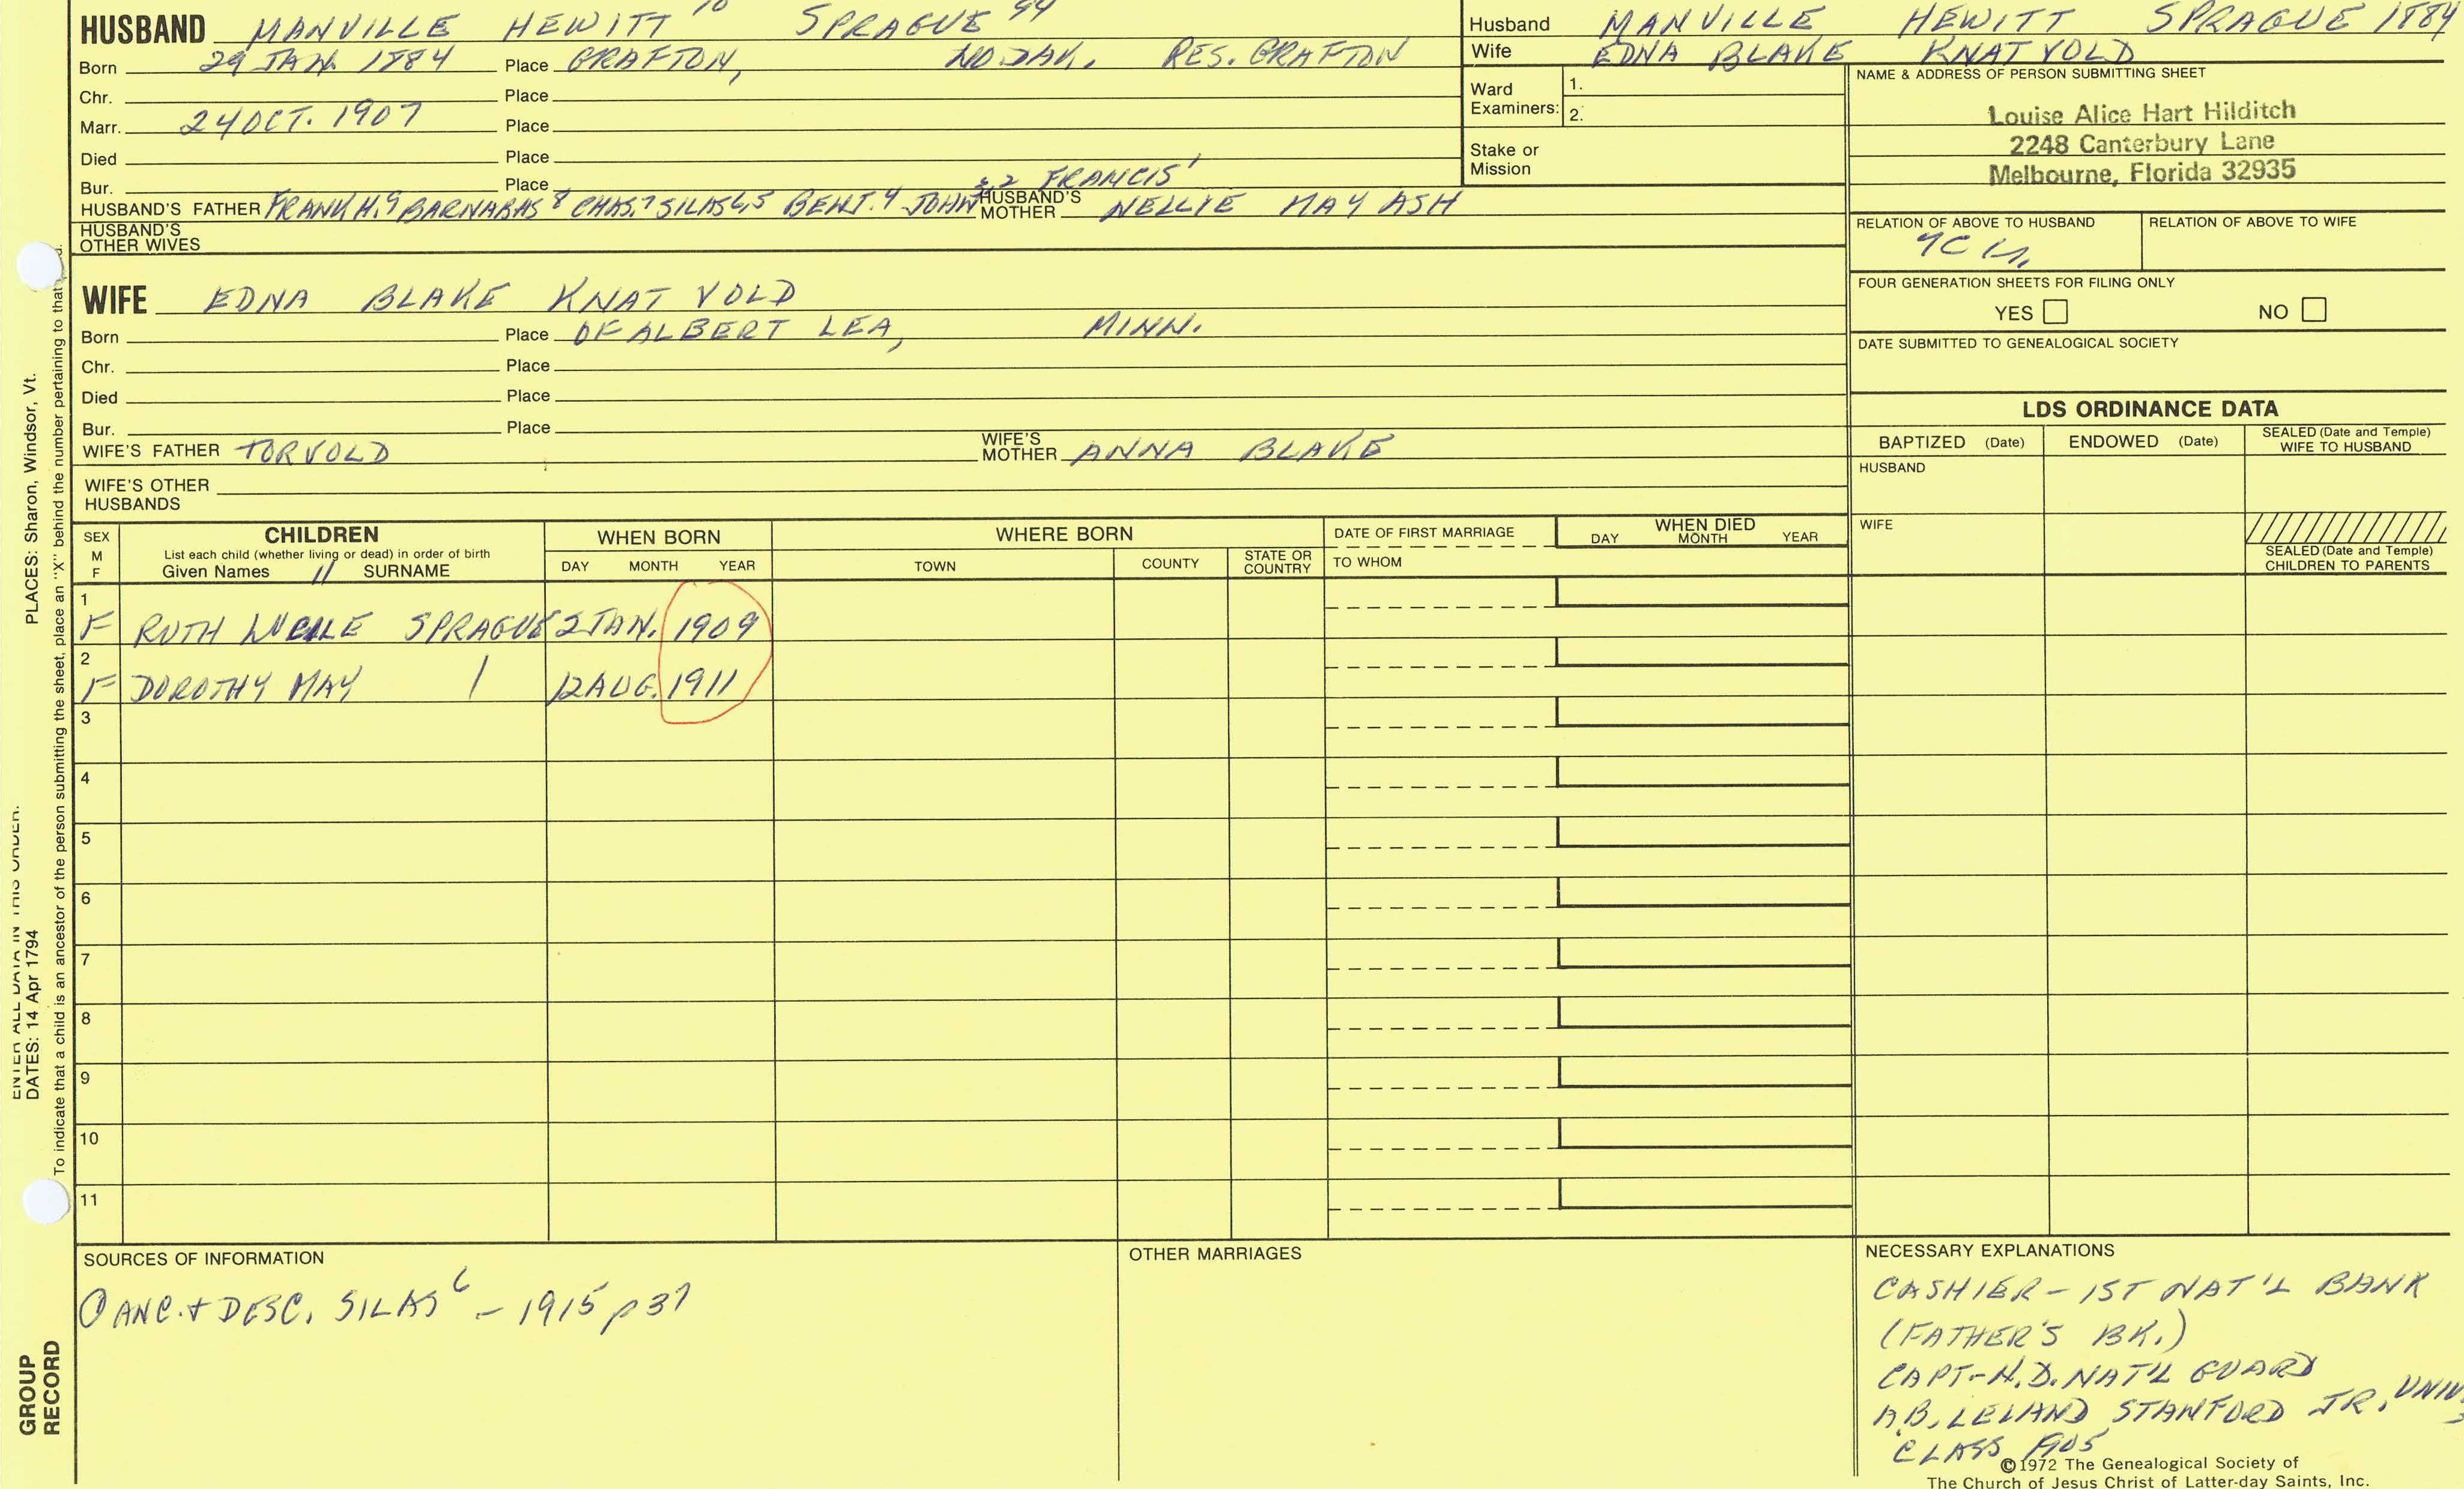 HUSBAND MANVILLE HEWITT 10 SPRAGUE 94
Born 29 JAN. 1884 Place GRAFTON, NO. DAK. RES. GRAFTON
Chr. Place
Marr. 24 OCT. 1907 Place
Died Place
Bur. Place
HUSBAND'S FATHER FRANK H.9 BARNABAS 8 CHAS.7 SILAS 6,5 BENT.4 JOHN 3,2 FRANCIS 1 HUSBAND'S MOTHER NELLIE MAY ASH
HUSBAND'S OTHER WIVES
Husband MANVILLE HEWITT SPRAGUE 1884
Wife EDNA BLAKE KNATVOLD
Ward Examiners: 1.
2.
Stake or Mission
NAME & ADDRESS OF PERSON SUBMITTING SHEET
Louise Alice Hart Hilditch
2248 Canterbury Lane
Melbourne, Florida 32935
RELATION OF ABOVE TO HUSBAND RELATION OF ABOVE TO WIFE
FOUR GENERATION SHEETS FOR FILING ONLY
YES NO
DATE SUBMITTED TO GENEALOGICAL SOCIETY
WIFE EDNA BLAKE KNAT VOLD
Born Place OF ALBERT LEA, MINN.
Chr. Place
Died Place
Bur. Place
WIFE'S FATHER TORVOLD WIFE'S MOTHER ANNA BLAKE
WIFE'S OTHER HUSBANDS
LDS ORDINANCE DATA
BAPTIZED (Date) ENDOWED (Date) SEALED (Date and Temple) WIFE TO HUSBAND
HUSBAND
WIFE
SEALED (Date and Temple) CHILDREN TO PARENTS
SEX M F
CHILDREN
List each child (whether living or dead) in order of birth
Given Names 11 SURNAME
WHEN BORN
DAY MONTH YEAR
WHERE BORN
TOWN COUNTY STATE OR COUNTRY
DATE OF FIRST MARRIAGE
TO WHOM
WHEN DIED
DAY MONTH YEAR
1
F RUTH LUCILE SPRAGUE 2 JAN. 1909
2
F DOROTHY MAY | 12 AUG. 1911
3
4
5
6
7
8
9
10
11
SOURCES OF INFORMATION
① ANC. + DESC. SILAS 6 - 1915 p 37
OTHER MARRIAGES
NECESSARY EXPLANATIONS
CASHIER - 1ST NAT'L BANK
(FATHER'S BK.)
CAPT - N.D. NAT'L GUARD
A.B. LELAND STANFORD JR. UNIV.
CLASS 1905
©1972 The Genealogical Society of
The Church of Jesus Christ of Latter-day Saints, Inc.
ENTER ALL DATA IN THIS ORDER:
DATES: 14 Apr 1794
PLACES: Sharon, Windsor, Vt.
To indicate that a child is an ancestor of the person submitting the sheet, place an "X" behind the number pertaining to that
GROUP
RECORD